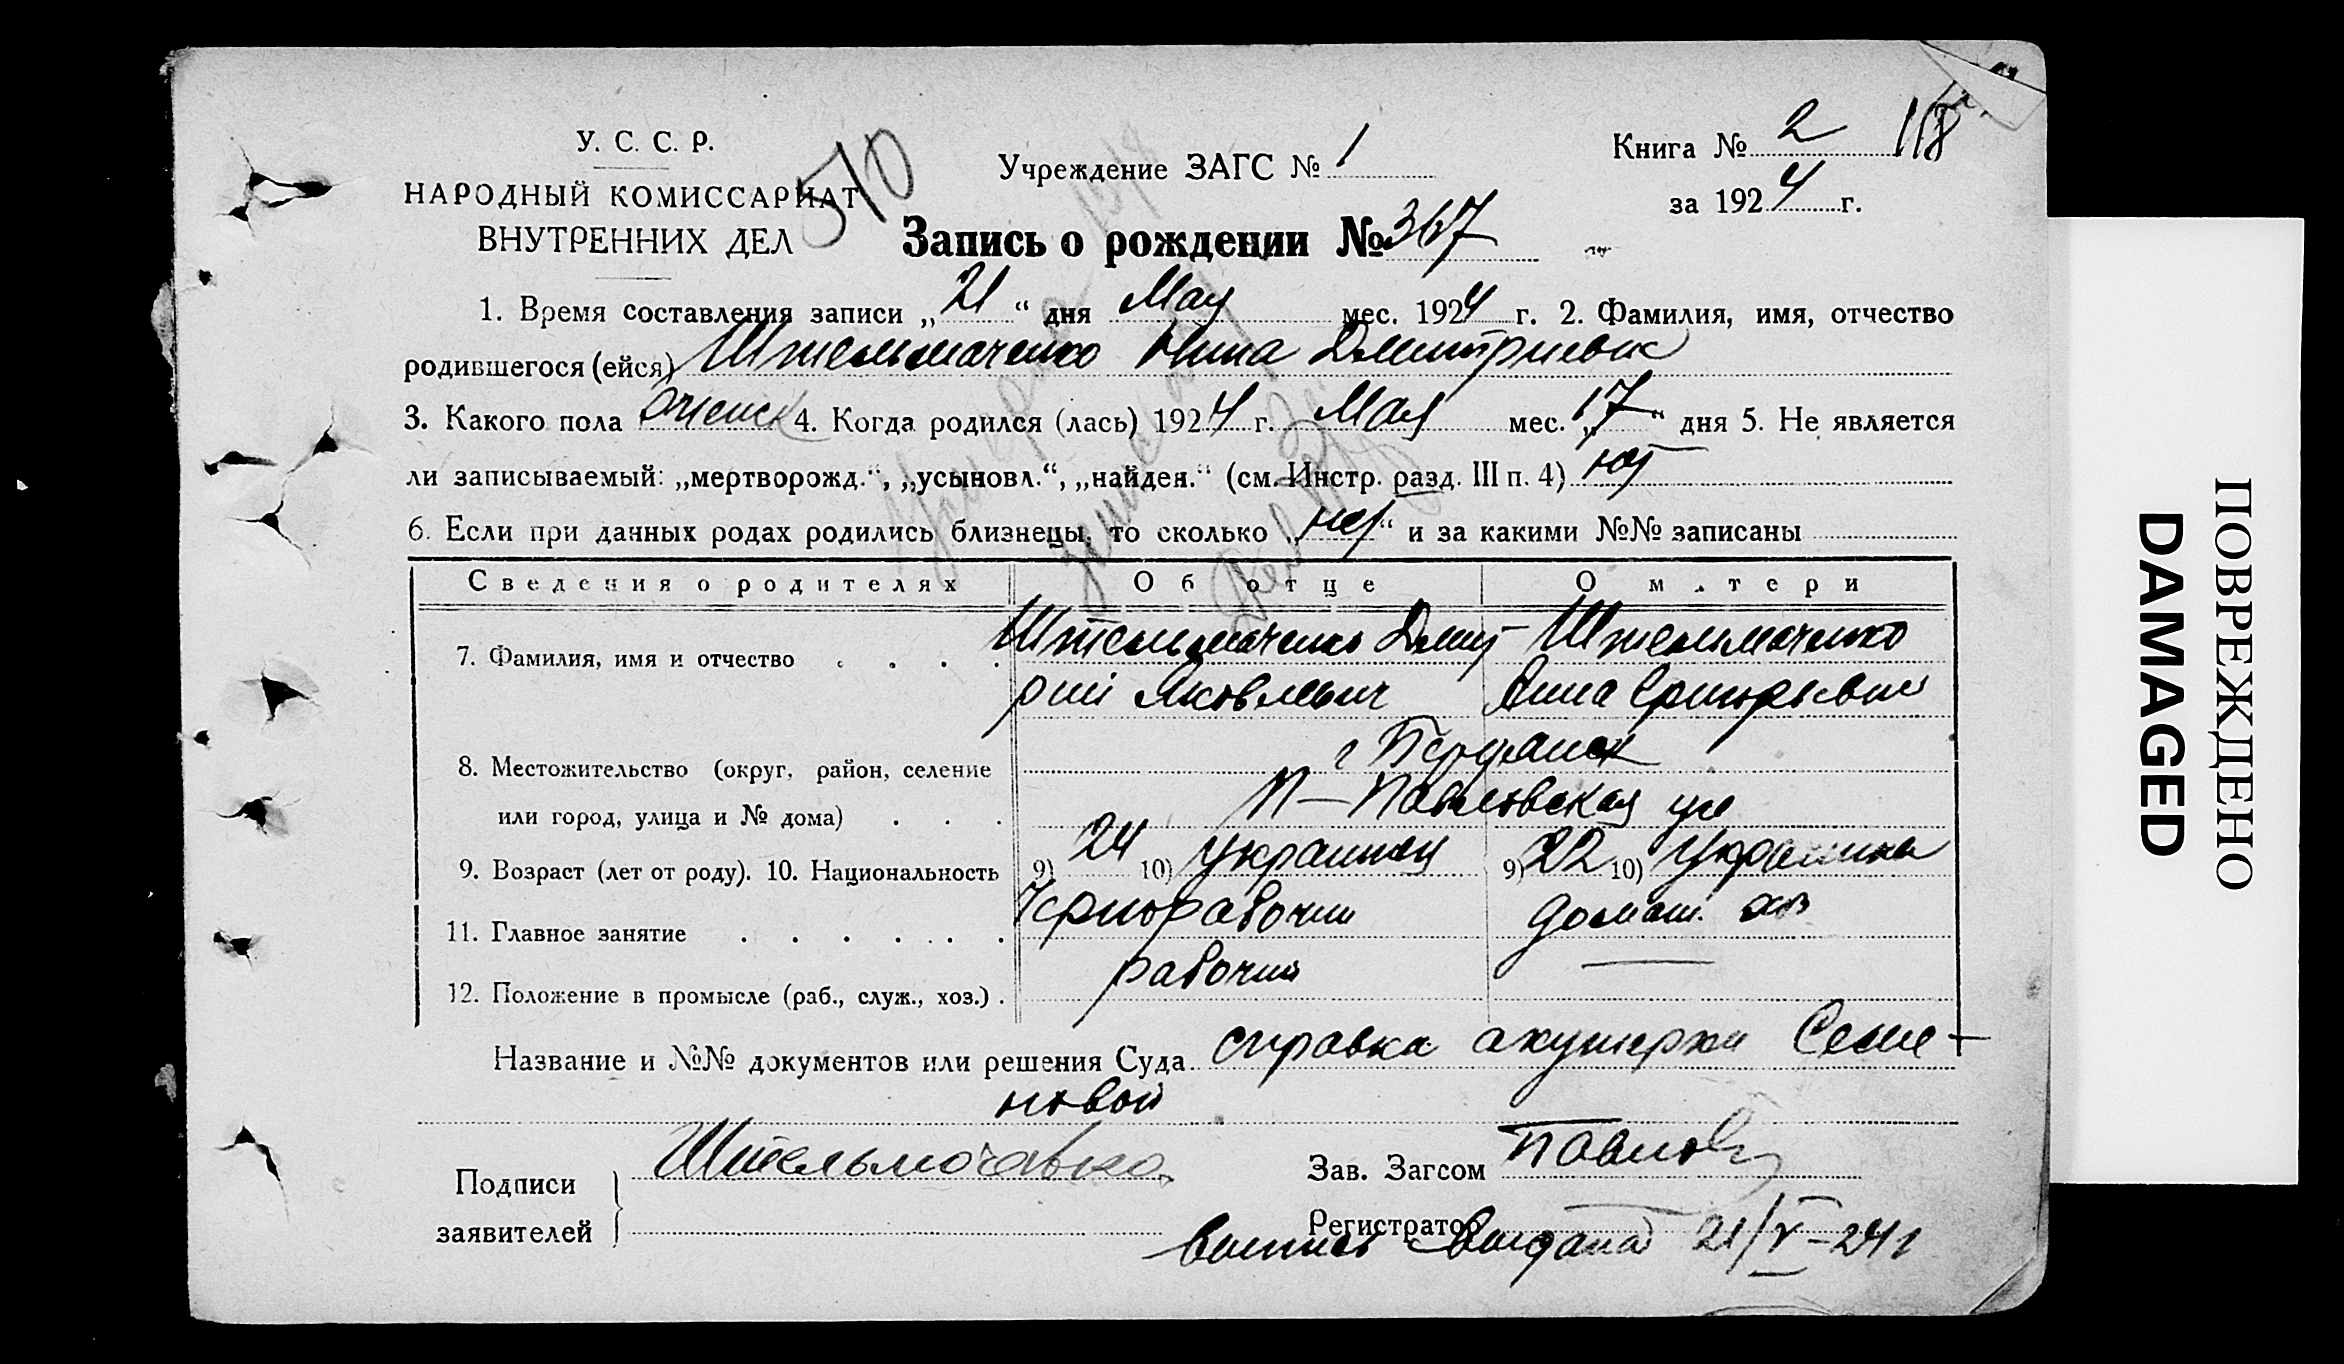 У. С. С. Р.
НАРОДНЫЙ КОМИССАРИАТ
ВНУТРЕННИХ ДЕЛ
510
Учреждение ЗАГС № 1
Книга № 2 118
за 1924 г.
Запись о рождении № 367
1. Время составления записи „21“ дня Мая мес. 1924 г. 2. Фамилия, имя, отчество
родившегося (ейся) Штельмаченко Нина Дмитриевна
3. Какого пола женск 4. Когда родился (лась) 1924 г. Мая мес. „17“ дня 5. Не является
ли записываемый: „мертворожд.“, „усыновл.“, „найден.“ (см. Инстр. разд. III п. 4) нет
6. Если при данных родах родились близнецы, то сколько „нет“ и за какими №№ записаны
Сведения о родителях Об отце О матери
7. Фамилия, имя и отчество Штельмаченко Дмит- Штельмаченко
рий Яковлевич Анна Григорьевна
8. Местожительство (округ, район, селение г Бердянск
или город, улица и № дома) П-Павловская ул
9. Возраст (лет от роду). 10. Национальность 9) 24 10) украинец 9) 22 10) украинка
11. Главное занятие Чернорабочий домаш. хоз
12. Положение в промысле (раб., служ., хоз.) рабочий —
Название и №№ документов или решения Суда справка акушерки Семе-
новой
Подписи
заявителей
Штельмаченко
Зав. Загсом Павлов
Регистратор
выпись выдана 21/V-24 г
ПОВРЕЖДЕНО
DAMAGED